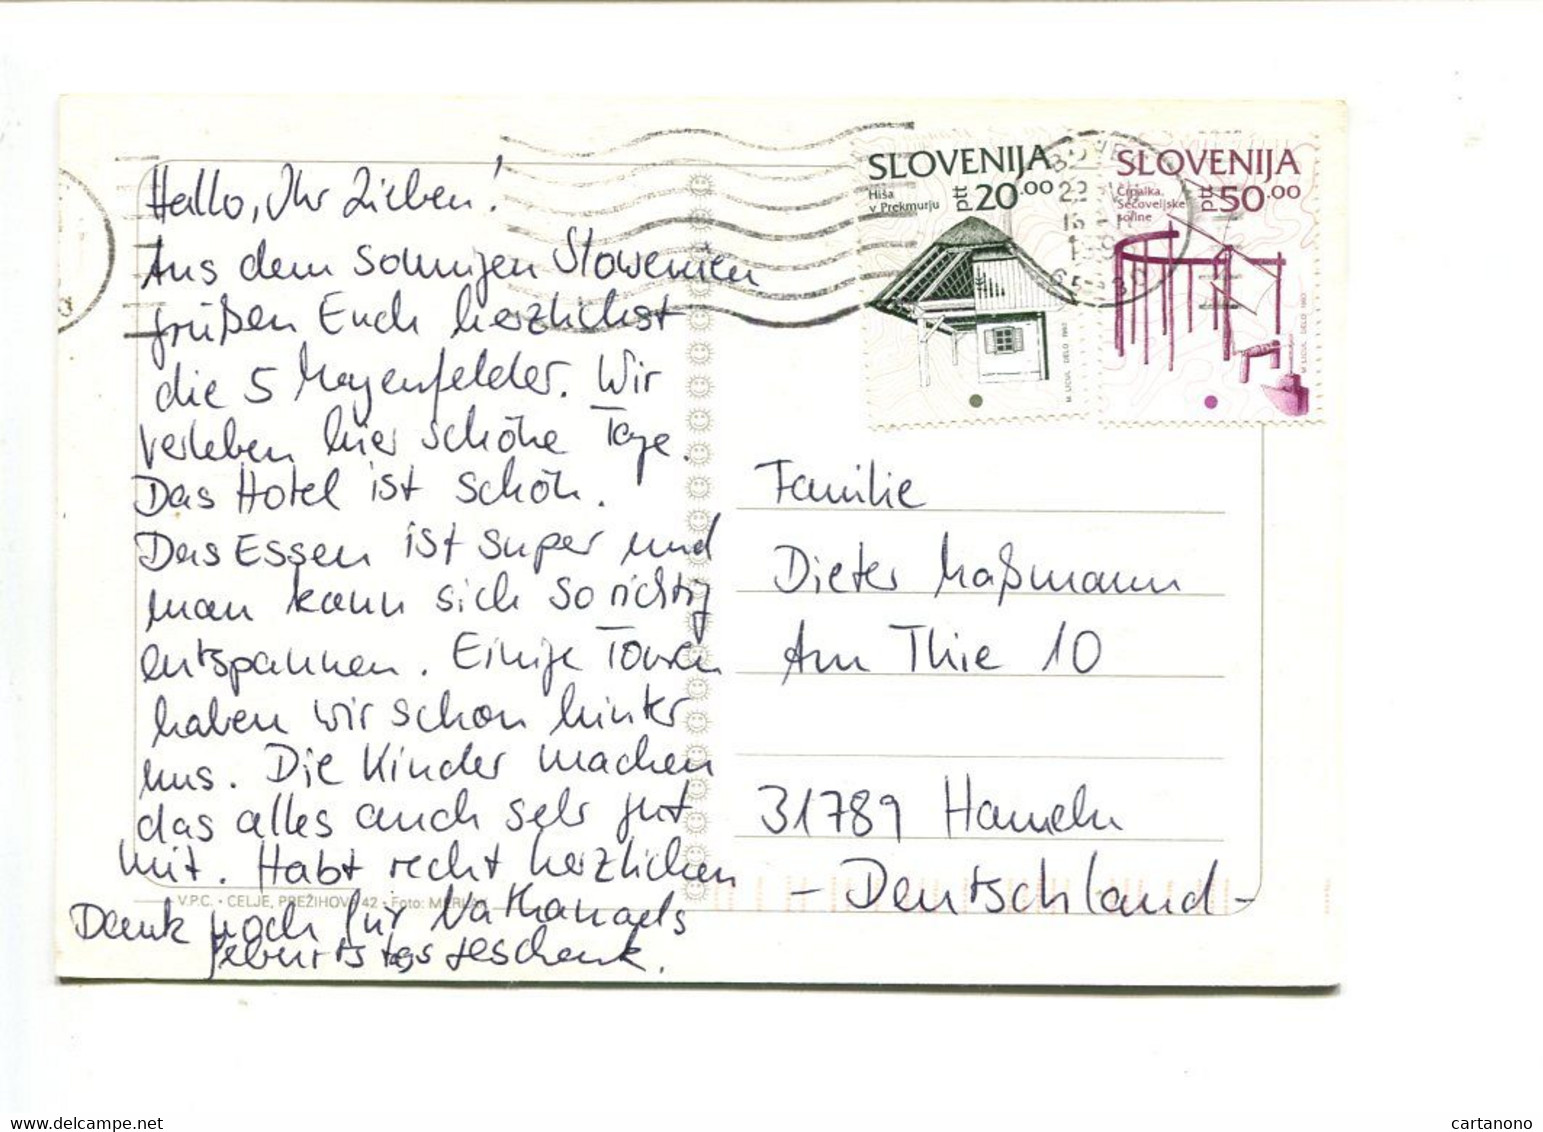 Hallo, Ihr Lieben!
Aus dem sonnigen Slowenien
grüßen Euch herzlichst
die 5 Mayenfelder. Wir
verleben hier schöne Tage.
Das Hotel ist schön.
Das Essen ist super und
man kann sich so richtig
entspannen. Einige Touren
haben wir schon hinter
uns. Die Kinder machen
das alles auch sehr gut
mit. Habt recht herzlichen
Dank noch für Nathanaels
Geburtstagsgeschenk.
V.P.C. • CELJE, PREŽIHOVA 42 • Foto: MERLAK
SLOVENIJA
Hiša
v Prekmurju
ptt 20.00
M. LICUL DELO 1993
SLOVENIJA
Črpalka,
Sečoveljske
soline
ptt 50.00
M. LICUL DELO 1993
Familie
Dieter Maßmann
Am Thie 10
31789 Hameln
- Deutschland -
cartanono